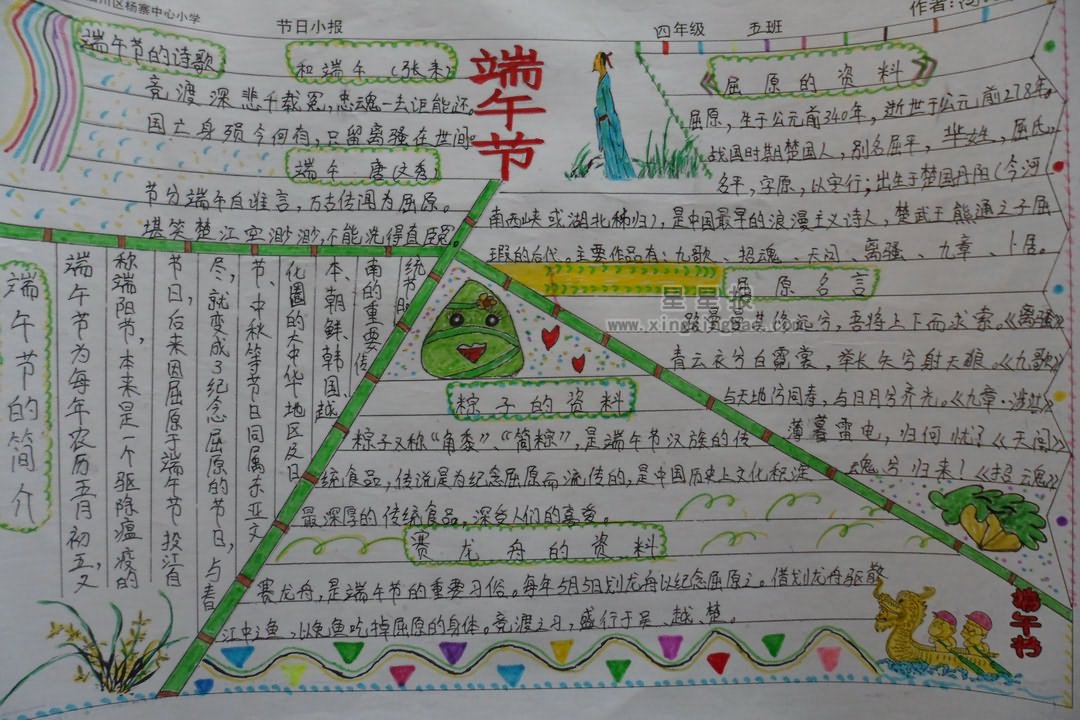 川区杨寨中心小学
节日小报
四年级
五班
作者:
端午节的诗歌
和端午(张耒)
竞渡深悲千载冤,忠魂一去讵能还。
国亡身殒今何有,只留离骚在世间。
端午 唐(文秀)
节分端午自谁言,万古传闻为屈原。
堪笑楚江空渺渺,不能洗得直臣冤。
端午节
《屈原的资料》
屈原,生于公元前340年,逝世于公元前278年。
战国时期楚国人,别名屈平,芈姓,屈氏,
名平,字原,以字行;出生于楚国丹阳(今河
南西峡或湖北秭归),是中国最早的浪漫主义诗人,楚武王熊通之子屈
瑕的后代。主要作品有:九歌、招魂、天问、离骚、九章、卜居。
屈原名言
路曼曼其修远兮,吾将上下而求索。《离骚》
青云衣兮白霓裳,举长矢兮射天狼。《九歌》
与天地兮同寿,与日月兮齐光。《九章·涉江》
薄暮雷电,归何忧?《天问》
魂兮归来!《招魂》
端午节的简介
端午节为每年农历五月初五,又
称端阳节,本来是一个驱除瘟疫的
节日,后来因屈原于端午节投江自
尽,就变成了纪念屈原的节日,与春
节、中秋等节日同属东亚文
化圈的大中华地区及日
本、朝鲜、韩国、越
南的重要传
统节日
粽子的资料
粽子又称“角黍”“筒粽”,是端午节汉族的传
统食品,传说是为纪念屈原而流传的,是中国历史上文化积淀
最深厚的传统食品,深受人们的喜爱。
赛龙舟的资料
赛龙舟,是端午节的重要习俗。每年5月5日划龙舟以纪念屈原之。借划龙舟驱散
江中之鱼,以免鱼吃掉屈原的身体。竞渡之习,盛行于吴、越、楚。
端午节
星星报
www.xingxingbao.com